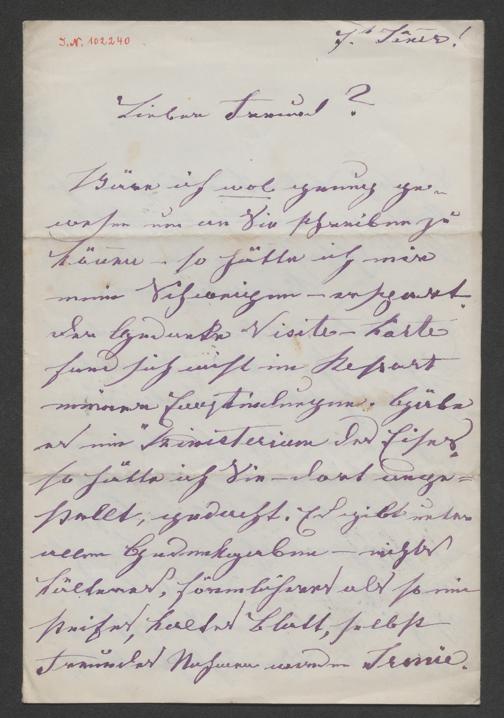 I.N. 102240
7t Jäner!
Lieber Freund?
Wäre ich wol genug ge-
wesen um an Sie schreiben zu
können – so hätte ich mir
mein Schweigen – erspart.
der Gedanke Visite-Karte
fand sich nicht im Ressort
meiner Empfindungen. Gäbe
es ein Ministerium des Eises
so hätte ich Sie – dort ange=
stellt, gedacht. Es gibt unter
allen Gedenkgaben – nichts
kälteres, förmlicheres als so ein
steifes, kaltes Blatt, selbst
Freundes Nahmen werden Ironie.